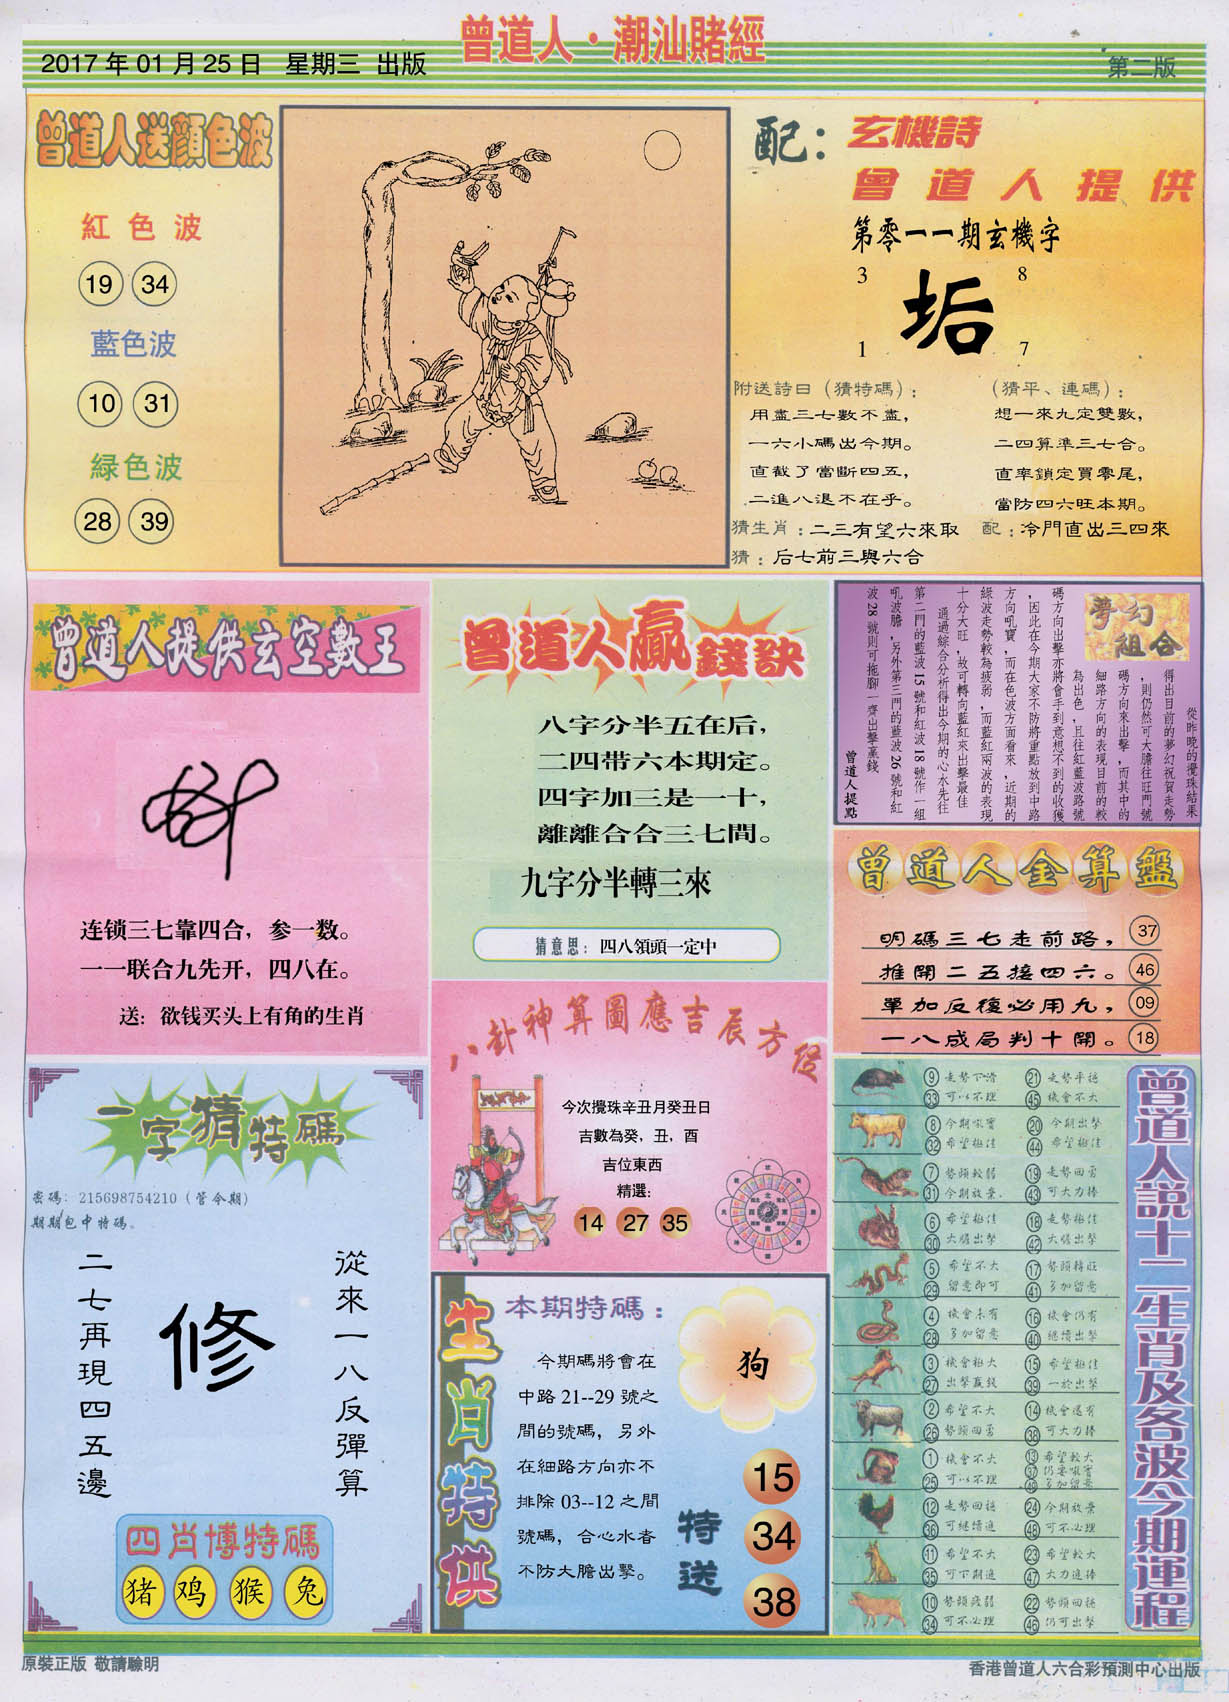 曾道人·潮汕賭經
2017年01月25日 星期三 出版
第二版
曾道人送顏色波
紅色波
19 34
藍色波
10 31
緑色波
28 39
配：玄機詩
曾道人提供
第零一一期玄機字
3 8
垢
1 7
附送詩曰（猜特碼）：
用盡三七數不盡，
一六小碼出今期。
直截了當斷四五，
二進八退不在乎。
（猜平、連碼）：
想一來九定雙數，
二四算準三七合。
直率鎖定買零尾，
當防四六旺本期。
猜生肖：二三有望六來取
配：冷門直出三四來
猜：后七前三與六合
曾道人提供玄空數王
连锁三七靠四合，参一数。
一一联合九先开，四八在。
送：欲钱买头上有角的生肖
曾道人贏錢訣
八字分半五在后，
二四带六本期定。
四字加三是一十，
離離合合三七間。
九字分半轉三來
猜意思：四八領頭一定中
夢幻組合
從昨晚的攪珠結果
得出目前的夢幻祝賀走勢
，則仍然可大膽往旺門號
碼方向來出擊，而其中的
細路方向的表現目前的較
為出色，且往紅藍波路號
碼方向出擊亦將會手到意想不到的收獲
，因此在今期大家不防將重點放到中路
方向吼寶，而在色波方面看來，近期的
綠波走勢較為疲弱，而藍紅兩波的表現
十分大旺，故可轉向藍紅來出擊最佳
通過綜合分析得出今期的心水先往
第二門的藍波15號和紅波18號作一組
吼波膽，另外第三門的藍波26號和紅
波28號則可拖腳一齊出擊贏錢
曾道人提點
曾道人金算盤
明碼三七走前路， 37
推開二五接四六。 46
單加反復必用九， 09
一八成局判十開。 18
八卦神算圖應吉辰方位
今次攪珠辛丑月癸丑日
吉數為癸，丑，酉
吉位東西
精選：
14 27 35
一字猜特碼
密碼：215698754210（管今期）
期期包中特碼。
從來一八反彈算
修
二七再現四五邊
四肖博特碼
猪 鸡 猴 兔
生肖特供
本期特碼：
今期碼將會在
中路21--29號之
間的號碼，另外
在細路方向亦不
排除03--12之間
號碼，合心水者
不防大膽出擊。
狗
特送
15
34
38
曾道人說十二生肖及各波今期運程
9 走勢下滑 21 走勢平穩
33 可以不理 45 機會不大
8 今期吼寶 20 今期出擊
32 希望極佳 44 希望極佳
7 勢頭較弱 19 走勢回勇
31 今期放棄 43 可大力捧
6 希望極佳 18 走勢極佳
30 大膽出擊 42 大膽出擊
5 希望不大 17 勢頭轉旺
29 留意即可 41 多加留意
4 機會未有 16 機會仍有
28 多加留意 40 繼續出擊
3 機會極大 15 希望極佳
27 出擊贏錢 39 一於出擊
2 希望不大 14 機會還有
26 勢頭回勇 38 可大力捧
1 機會不大 13 希望較大
25 可以不理 37 仍要吼實
49 多加留意
12 走勢回穩 24 今期放棄
36 可繼續追 48 可不必理
11 希望不大 23 希望較大
35 可下期追 47 大力追捧
10 勢頭疲弱 22 勢頭回穩
34 可不必理 46 仍可出擊
原裝正版 敬請驗明
香港曾道人六合彩預測中心出版